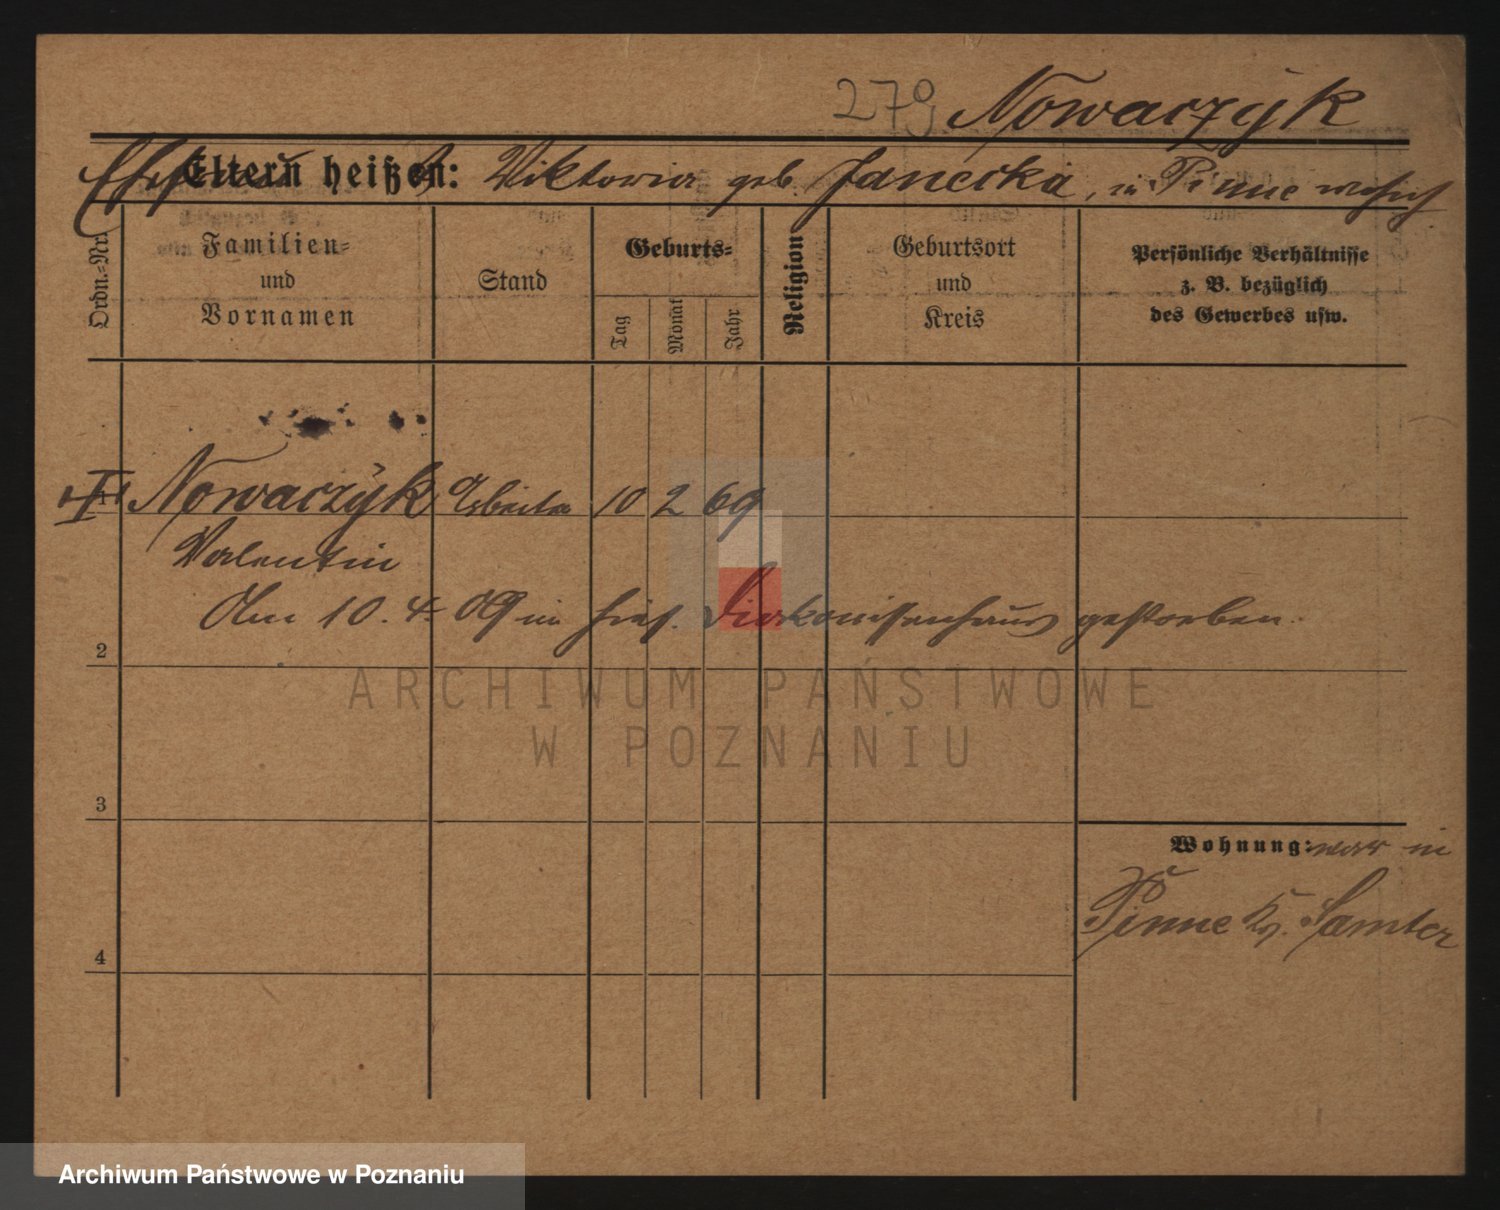 279 Nowaczyk
Ehefrau Eltern heißen: Viktoria geb. Janecka, in Pinne wohnh
Ordn.-Nr.
Familien-
und
Vornamen
Stand
Geburts-
Tag
Monat
Jahr
Religion
Geburtsort
und
Kreis
Persönliche Verhältnisse
z. B. bezüglich
des Gewerbes usw.
1 Nowaczyk Arbeiter 10 2 69
Valentin
Am 10. 4. 09 im hies. Diakonissenhaus gestorben.
2
ARCHIWUM PAŃSTWOWE
W POZNANIU
3
Wohnung: war in
Pinne Kr. Samter
4
Archiwum Państwowe w Poznaniu